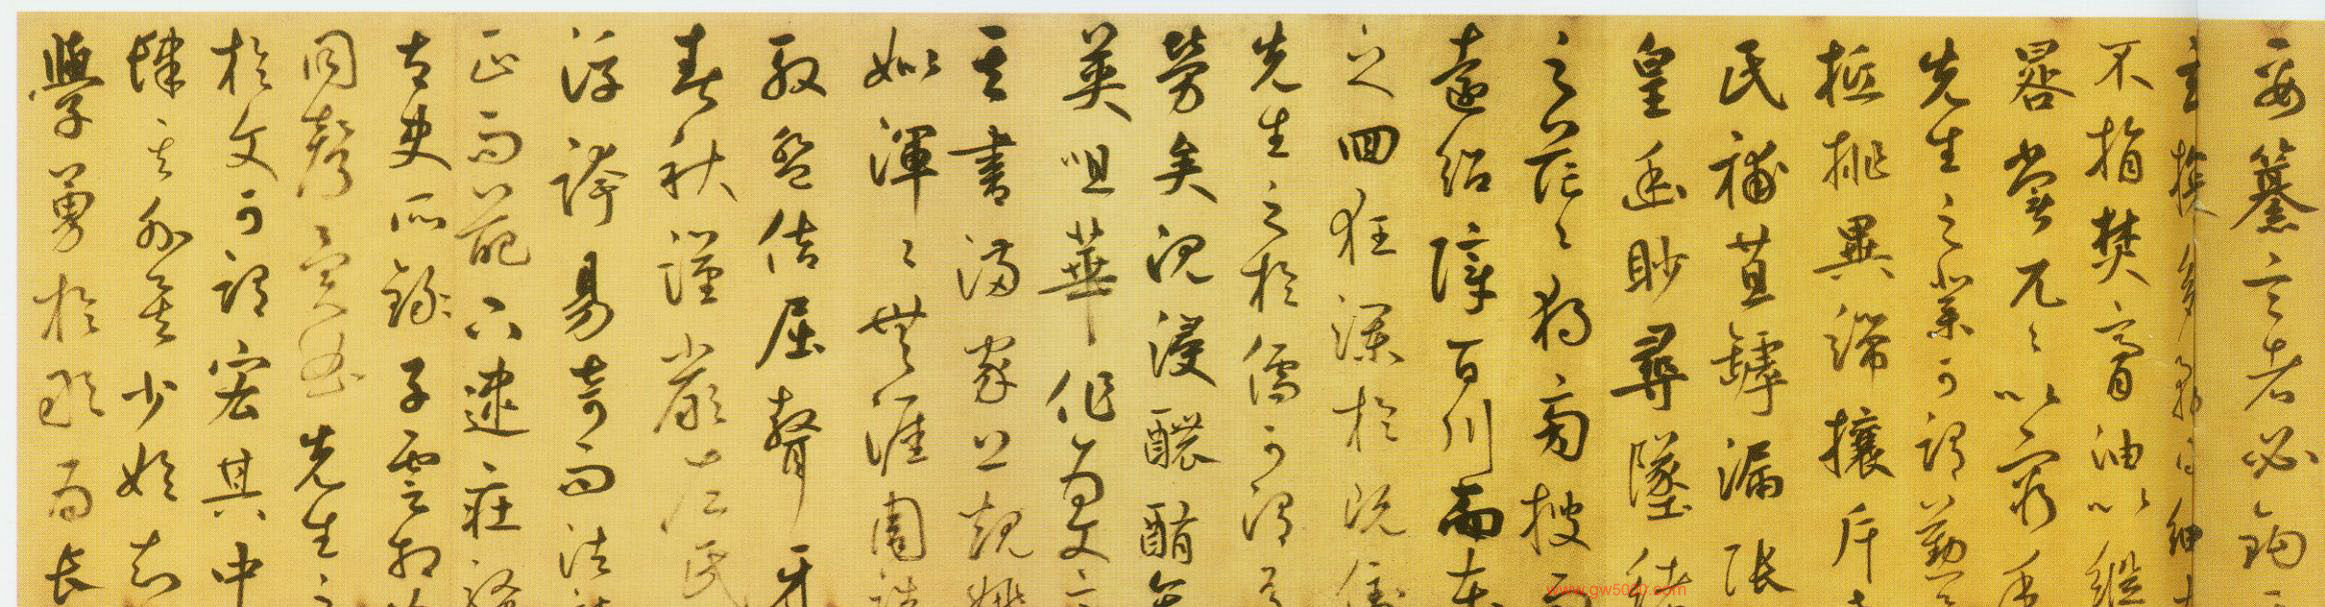 要纂言者必鉤
玄貪多務得細大
不捐焚膏油以繼
晷常兀〻以窮年
先生之業可謂勤矣
抵排異端攘斥
民補苴罅漏張
皇幽眇尋墜緒
之茫〻獨旁搜而
遠紹障百川而東
之回狂瀾於既倒
先生之於儒可謂有
勞矣沉浸醲醑含
英咀華作為文章
其書滿家上規姚
姒渾〻無涯周誥
殷盤佶屈聱牙
春秋謹嚴左氏
浮誇易奇而法詩
正而葩下逮莊騷
太史所錄子雲相如
同聲異曲先生之
於文可謂宏其中
肆其外矣少始知
學勇於敢為長
www.gw5000.com